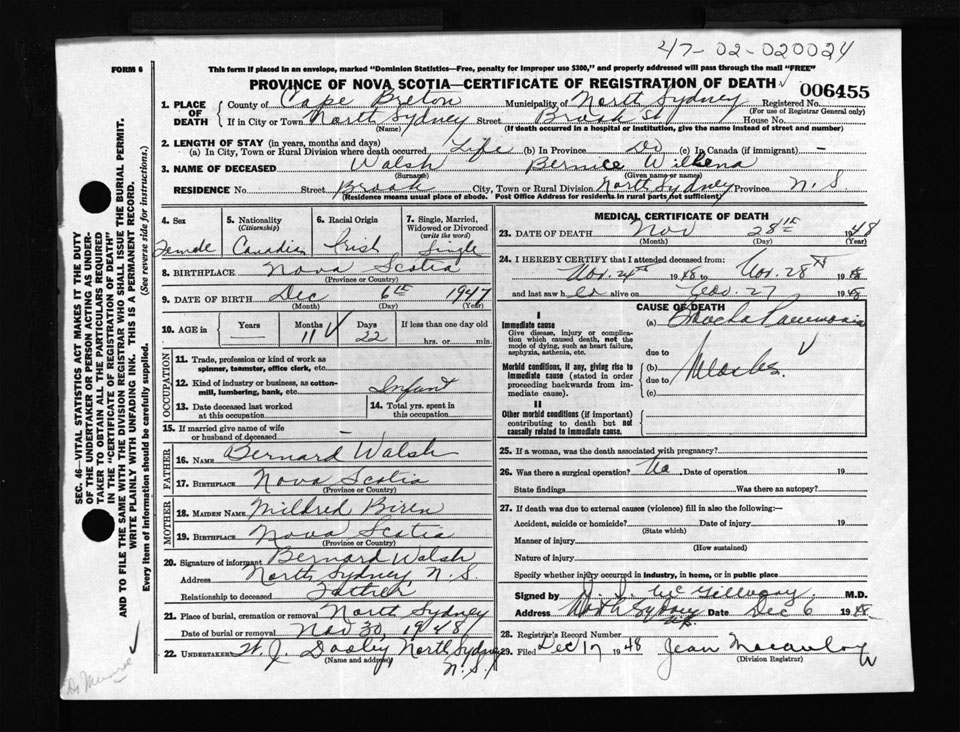 47-02-020024
FORM 6
This form if placed in an envelope, marked "Dominion Statistics—Free, penalty for improper use $300," and properly addressed will pass through the mail "FREE"
PROVINCE OF NOVA SCOTIA—CERTIFICATE OF REGISTRATION OF DEATH
006455
1. PLACE OF DEATH
County of Cape Breton Municipality of North Sydney Registered No.
(For use of Registrar General only)
If in City or Town North Sydney Street Brook St House No.
(Name) (If death occurred in a hospital or institution, give the name instead of street and number)
2. LENGTH OF STAY (in years, months and days)
(a) In City, Town or Rural Division where death occurred Life (b) In Province Do (c) In Canada (if immigrant) —
3. NAME OF DECEASED Walsh Bernice Wilhena
(Surname) (Given name or names)
RESIDENCE No Street Brook City, Town or Rural Division North Sydney Province N. S
(Residence means usual place of abode. Post Office Address for residents in rural parts not sufficient)
4. Sex
Female
5. Nationality
(Citizenship)
Canadian
6. Racial Origin
Irish
7. Single, Married, Widowed or Divorced
(write the word)
Single
8. BIRTHPLACE Nova Scotia
(Province or Country)
9. DATE OF BIRTH Dec 6th 1947
(Month) (Day) (Year)
10. AGE in Years Months Days If less than one day old
— 11 22 hrs. or min.
OCCUPATION
11. Trade, profession or kind of work as spinner, teamster, office clerk, etc.
12. Kind of industry or business, as cotton-mill, lumbering, bank, etc. Infant
13. Date deceased last worked at this occupation
14. Total yrs. spent in this occupation
15. If married give name of wife or husband of deceased —
FATHER
16. NAME Bernard Walsh
17. BIRTHPLACE Nova Scotia
(Province or Country)
MOTHER
18. MAIDEN NAME Mildred Biren
19. BIRTHPLACE Nova Scotia
(Province or Country)
20. Signature of informant Bernard Walsh
Address North Sydney N. S.
Relationship to deceased Father
21. Place of burial, cremation or removal North Sydney
Date of burial or removal Nov 30, 1948
22. UNDERTAKER W. J. Dooley North Sydney
(Name and address) N. S.
MEDICAL CERTIFICATE OF DEATH
23. DATE OF DEATH Nov 28th 1948
(Month) (Day) (Year)
24. I HEREBY CERTIFY that I attended deceased from:
Nov. 24th 1948 to Nov. 28th 1948
and last saw h er alive on Nov. 27 1948
CAUSE OF DEATH
I
Immediate cause
Give disease, injury or complication which caused death, not the mode of dying, such as heart failure, asphyxia, asthenia, etc.
(a) Broncho Pneumonia
due to
Morbid conditions, if any, giving rise to immediate cause (stated in order proceeding backwards from immediate cause).
(b) Measles.
due to
(c)
II
Other morbid conditions (if important) contributing to death but not causally related to immediate cause.
25. If a woman, was the death associated with pregnancy?
26. Was there a surgical operation? No Date of operation 19
State findings Was there an autopsy?
27. If death was due to external causes (violence) fill in also the following:—
Accident, suicide or homicide? Date of injury 19
(State which)
Manner of injury
(How sustained)
Nature of injury
Specify whether injury occurred in industry, in home, or in public place
Signed by McGillvary M.D.
Address North Sydney N.S. Date Dec 6 1948
28. Registrar's Record Number
29. Filed Dec 17 1948 Jean Macaulay
(Division Registrar)
SEC. 46—VITAL STATISTICS ACT MAKES IT THE DUTY
OF THE UNDERTAKER OR PERSON ACTING AS UNDER-
TAKER TO OBTAIN ALL THE PARTICULARS REQUIRED
IN THE "CERTIFICATE OF REGISTRATION OF DEATH"
AND TO FILE THE SAME WITH THE DIVISION REGISTRAR WHO SHALL ISSUE THE BURIAL PERMIT.
WRITE PLAINLY WITH UNFADING INK. THIS IS A PERMANENT RECORD.
Every item of Information should be carefully supplied. (See reverse side for instructions.)